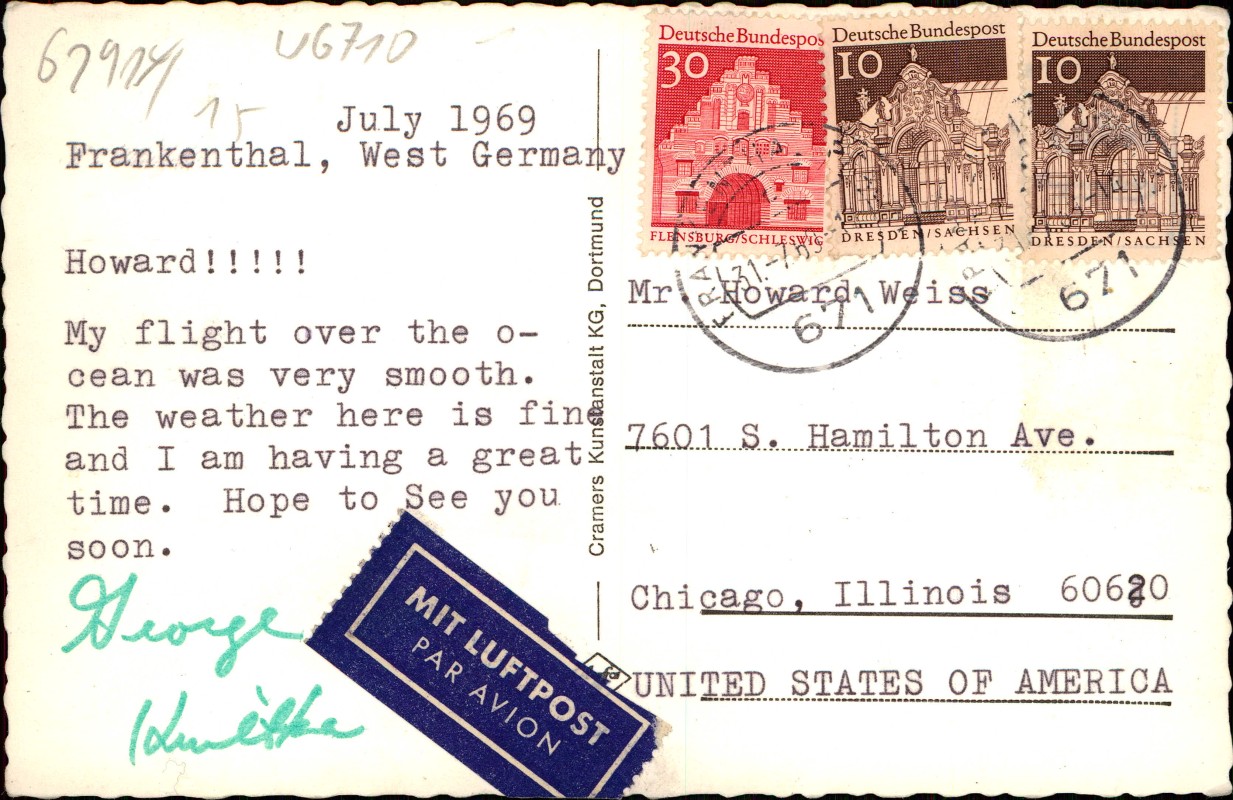 67914
U6710
15
July 1969
Frankenthal, West Germany
Howard!!!!!
My flight over the o-
cean was very smooth.
The weather here is fine
and I am having a great
time. Hope to See you
soon.
George
MIT LUFTPOST
PAR AVION
Cramers Kunstanstalt KG, Dortmund
Deutsche Bundespos
30
FLENSBURG/SCHLESWIG
Deutsche Bundespost
10
DRESDEN/SACHSEN
Deutsche Bundespost
10
DRESDEN/SACHSEN
31.-7.69
671
671
Mr. Howard Weiss
7601 S. Hamilton Ave.
Chicago, Illinois 60620
UNITED STATES OF AMERICA